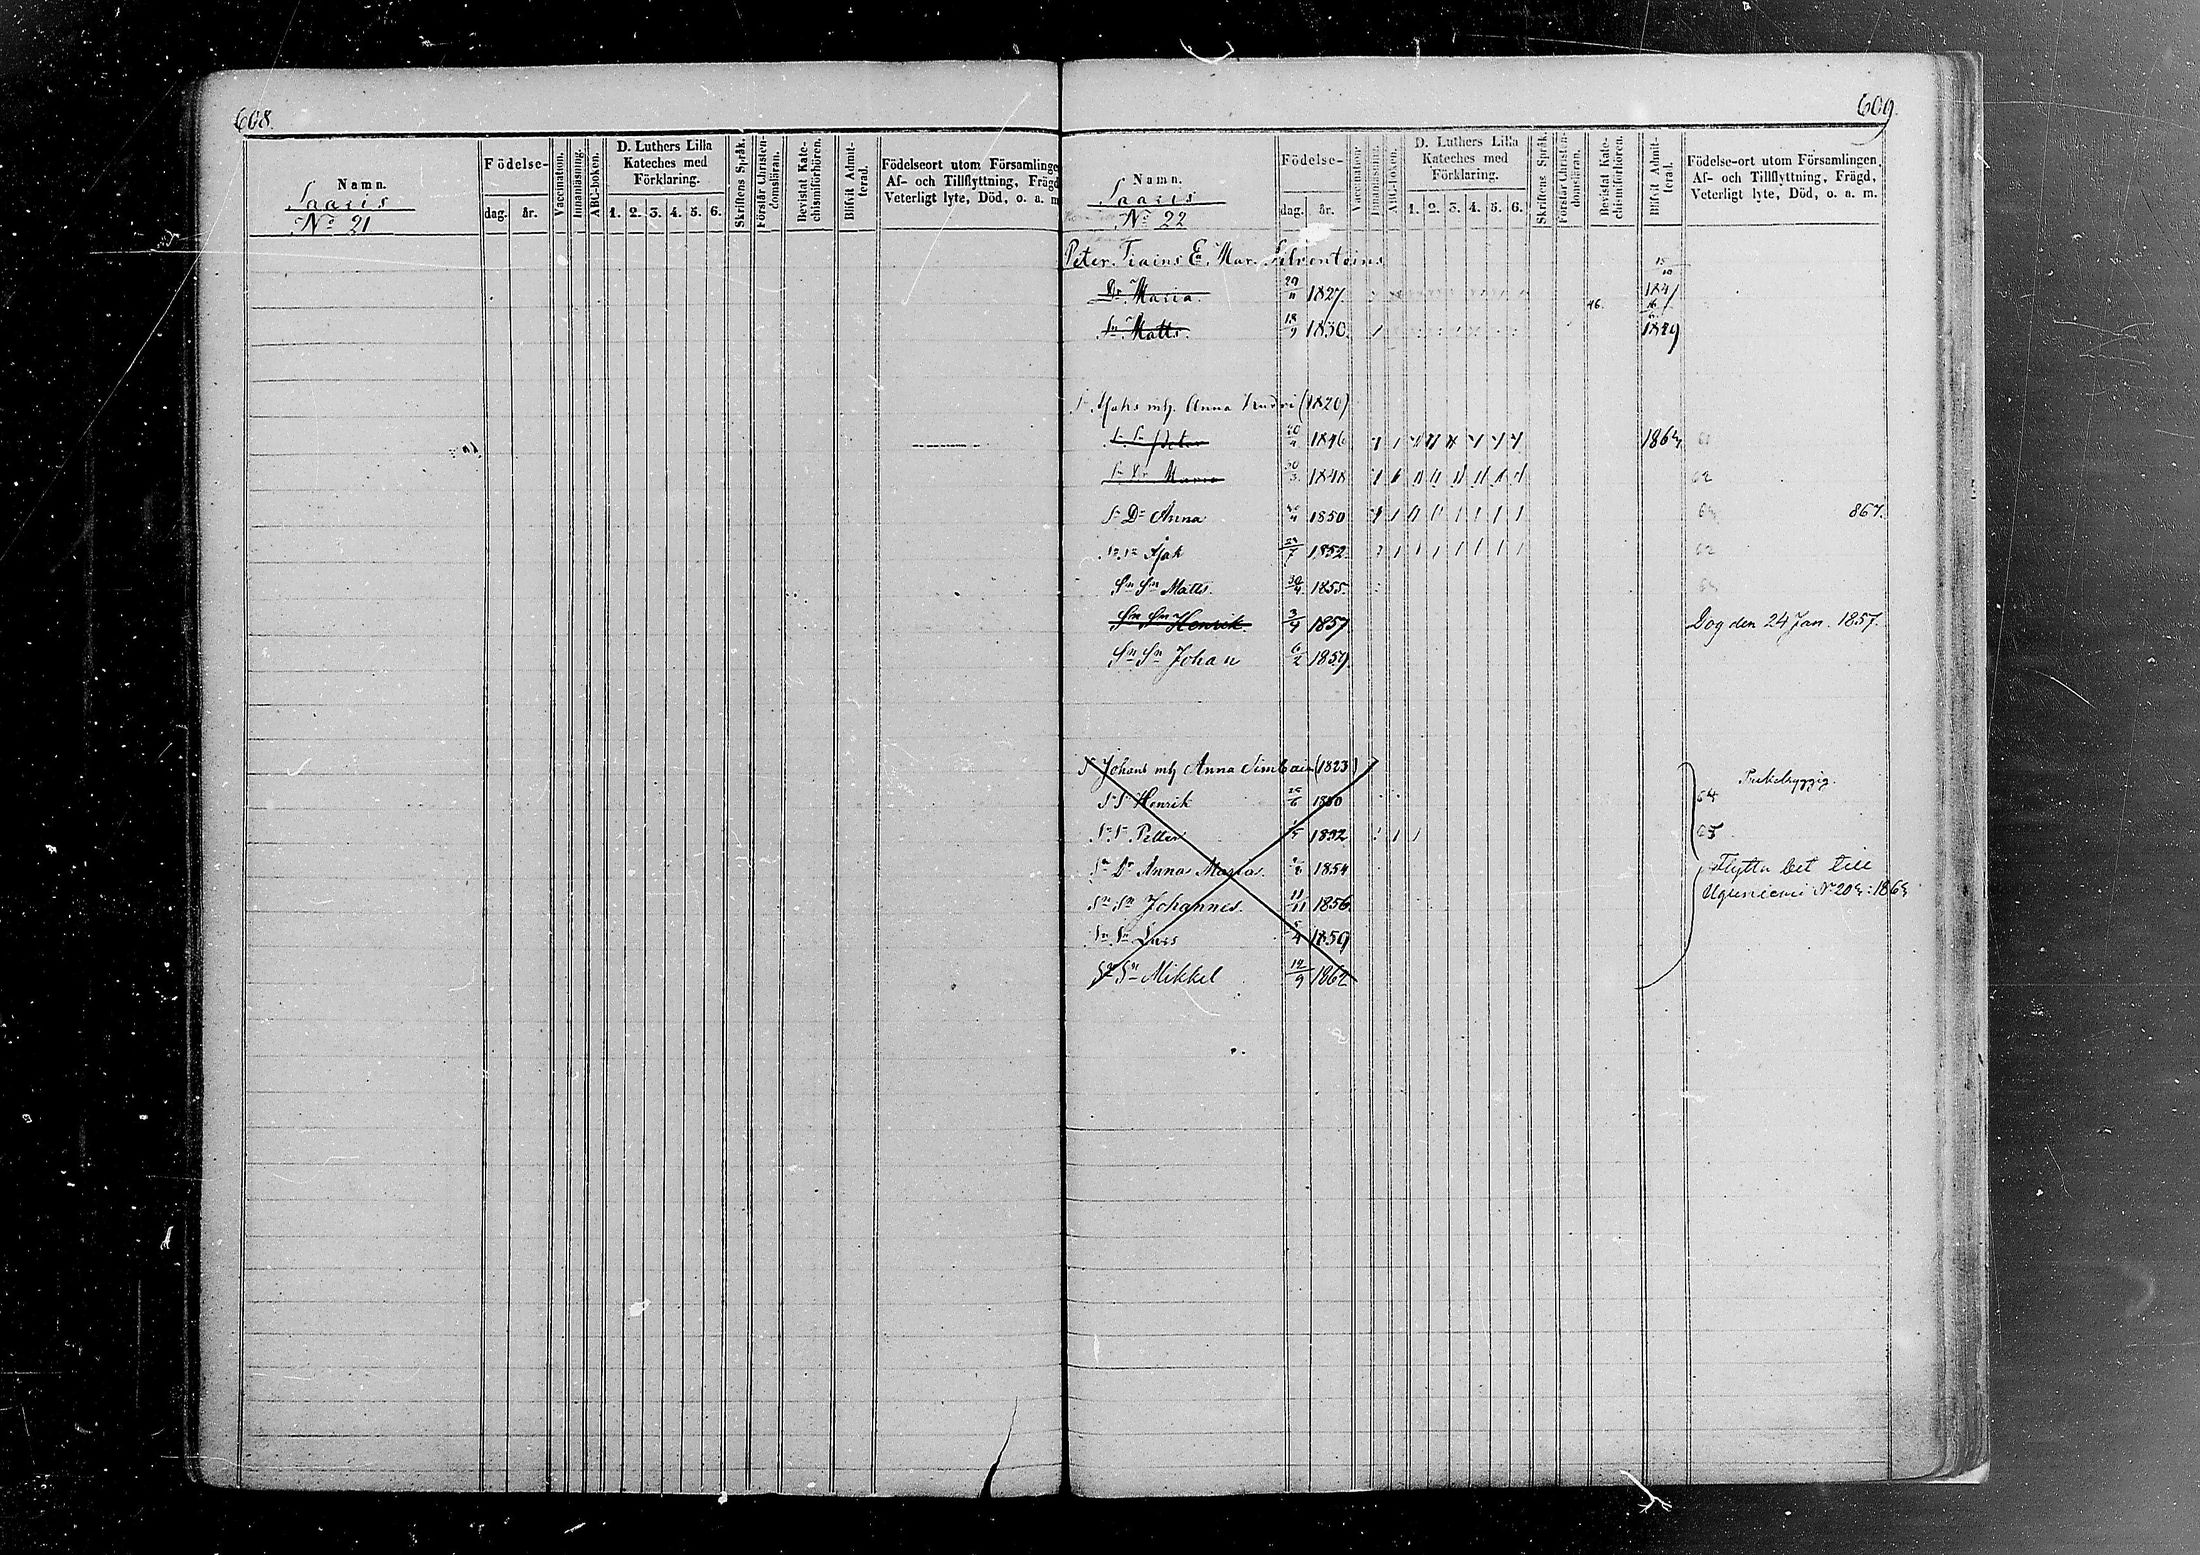 608.
Namn.
Saaris
No 21
Födelse-
dag. år.
Vaccination.
Innanläsning.
ABC-boken.
D. Luthers Lilla
Kateches med
Förklaring.
1. 2. 3. 4. 5. 6.
Skriftens Språk.
Förstår Christen-
domsläran.
Bevistat Kate-
chismiförhören.
Blifvit Admit-
terad.
Födelseort utom Församlinge
Af- och Tillflyttning, Frägd
Veterligt lyte, Död, o. a. m
609.
Namn.
Saaris
No 22
Födelse-
dag. år.
Vaccination.
Innanläsning.
ABC-boken.
D. Luthers Lilla
Kateches med
Förklaring.
1. 2. 3. 4. 5. 6.
Skriftens Språk.
Förstår Christen-
domsläran.
Bevistat Kate-
chismiförhören.
Blifvit Admit-
terad.
Födelse-ort utom Församlingen,
Af- och Tillflyttning, Frägd,
Veterligt lyte, Död, o. a. m.
Peter Tiains Ea Mar.
Dr Maria. 29/11 1827 46.
Sn Matts. 18/9 1830. 1849
Anna (1820)
Sn Sn Peter 1846 1864
Sn Dr Maria 30/3 1848 62
Sn Dr Anna 1850 867.
1852 62
Sn Sn Matts. 30/4 1855.
Sn Sn Henrik. 3/4 1857 Dog den 24 Jan. 1857.
Sn Sn Johan 6/2 1859.
S Johans mh Anna (1823)
Sn Sn Henrik 1850 64
Sn Sn Petter 1852 65
Sn Dr Anna Maria. 1854 Flytta det till
Sn Sn Johannes. 11/11 1856. No 20
Sn Sn Lars 5/4 1859
Sn Sn Mikkel 12/9 1862